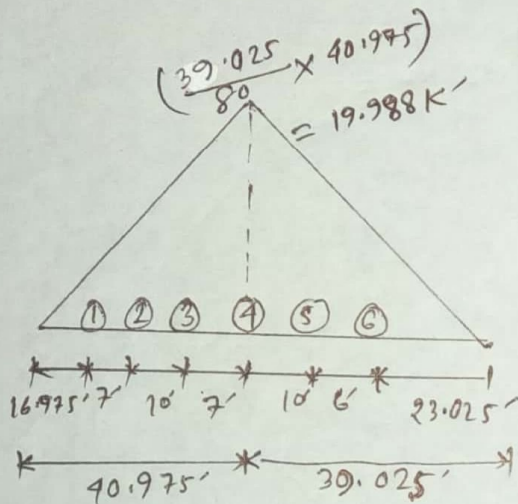 (39.025/80 × 40.975)
= 19.988 K'
① ② ③ ④ ⑤ ⑥
16.975' 7' 10' 7' 10' 6' 23.025'
40.975' 39.025'